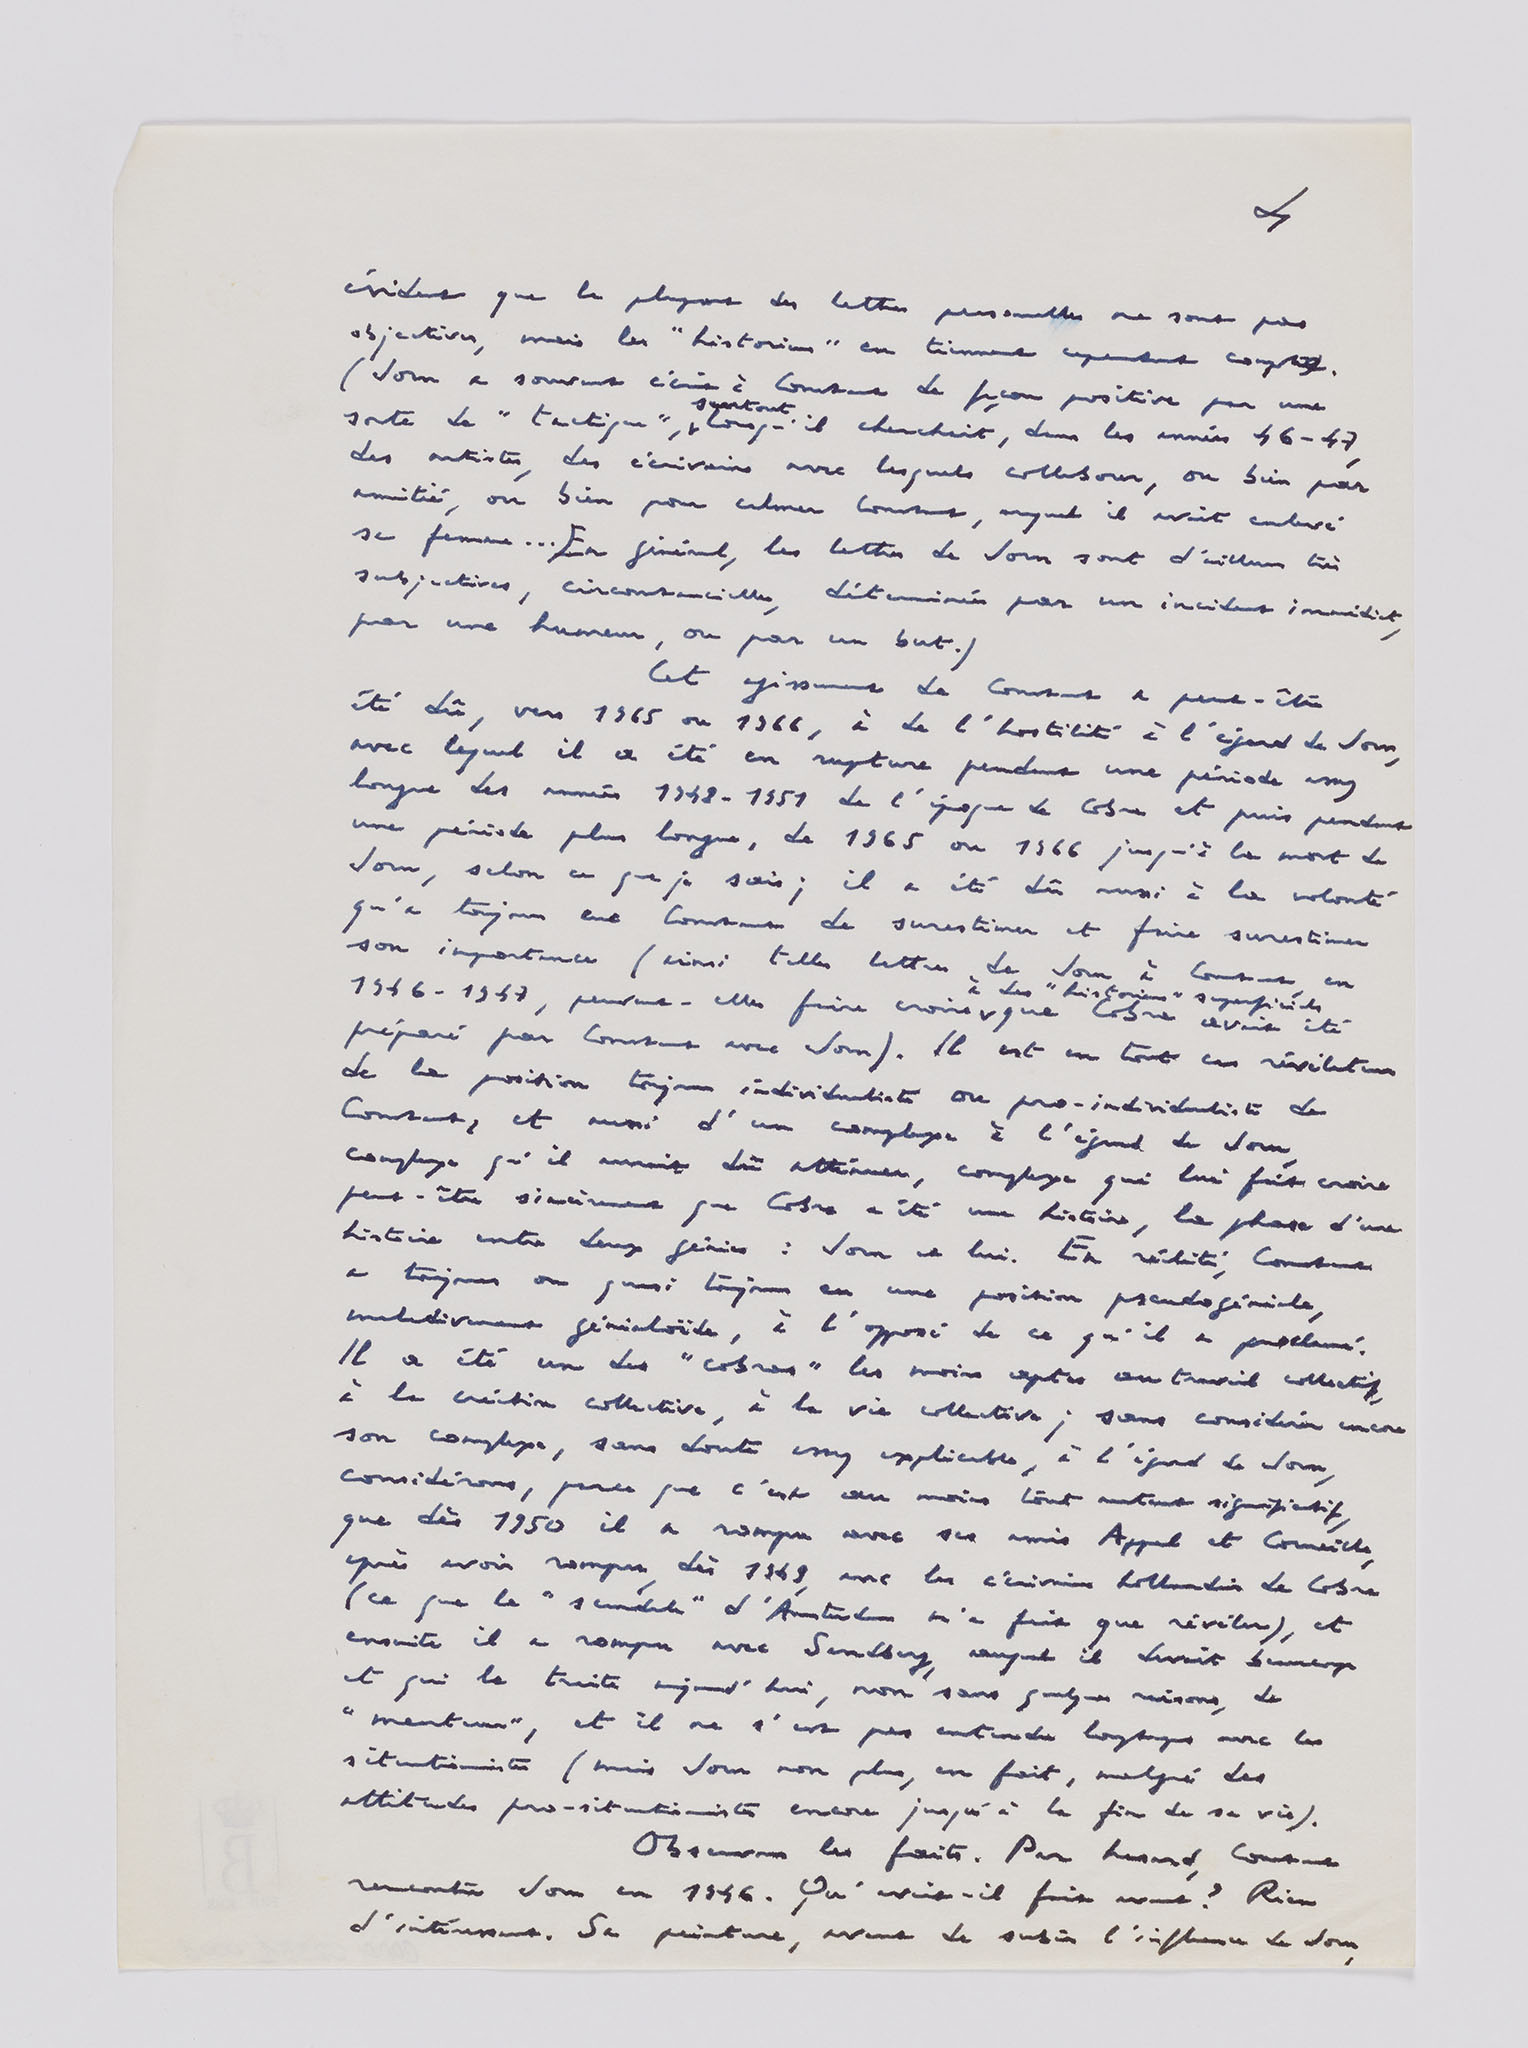 4
évident que la plupart des lettres personnelles ne sont pas
objectives, mais les "historiens" en tiennent cependant compte.
(Jorn a souvent écrit à Constant de façon positive par une
sorte de "tactique", surtout lorsqu'il cherchait, dans les années 46-47,
des artistes, des écrivains avec lesquels collaborer, ou bien par
amitié, ou bien pour calmer Constant, auquel il avait enlevé
sa femme... En général, les lettres de Jorn sont d'ailleurs très
subjectives, circonstancielles, déterminées par un incident immédiat,
par une humeur, ou par un but.)
Cet agissement de Constant a peut-être
été dû, vers 1965 ou 1966, à de l'hostilité à l'égard de Jorn,
avec lequel il a été en rupture pendant une période assez
longue des années 1948-1951 de l'époque de Cobra et puis pendant
une période plus longue, de 1965 ou 1966 jusqu'à la mort de
Jorn, selon ce que je sais; il a été dû aussi à la volonté
qu'a toujours eue Constant de surestimer et faire surestimer
son importance (ainsi telles lettres de Jorn à Constant, en
1946-1947, peuvent-elles faire croire à des "historiens" superficiels que Cobra avait été
préparé par Constant avec Jorn). Il est en tout cas révélateur
de la position toujours individualiste ou pro-individualiste de
Constant, et aussi d'un complexe à l'égard de Jorn,
complexe qu'il aurait dû atténuer, complexe qui lui fait croire
peut-être sincèrement que Cobra a été une histoire, la phase d'une
histoire entre deux génies : Jorn et lui. En réalité, Constant
a toujours ou quasi toujours eu une position pseudogéniale,
maladivement génialoïde, à l'opposé de ce qu'il a proclamé.
Il a été un des "cobras" les moins aptes au travail collectif,
à la création collective, à la vie collective; sans considérer encore
son complexe, sans doute assez explicable, à l'égard de Jorn,
considérons, parce que c'est au moins tout autant significatif,
que dès 1950 il a rompu avec ses amis Appel et Corneille,
après avoir rompu, dès 1949, avec les écrivains hollandais de Cobra
(ce que le "scandale" d'Amsterdam n'a fait que révéler), et
ensuite il a rompu avec Sandberg, auquel il devait beaucoup
et qui le traite aujourd'hui, non sans quelques raisons, de
"menteur", et il ne s'est pas entendu longtemps avec les
situationnistes (mais Jorn non plus, en fait, malgré des
attitudes pro-situationnistes encore jusqu'à la fin de sa vie).
Observons les faits. Par hasard, Constant
rencontre Jorn en 1946. Qu'avait-il fait avant? Rien
d'intéressant. Sa peinture, avant de subir l'influence de Jorn,